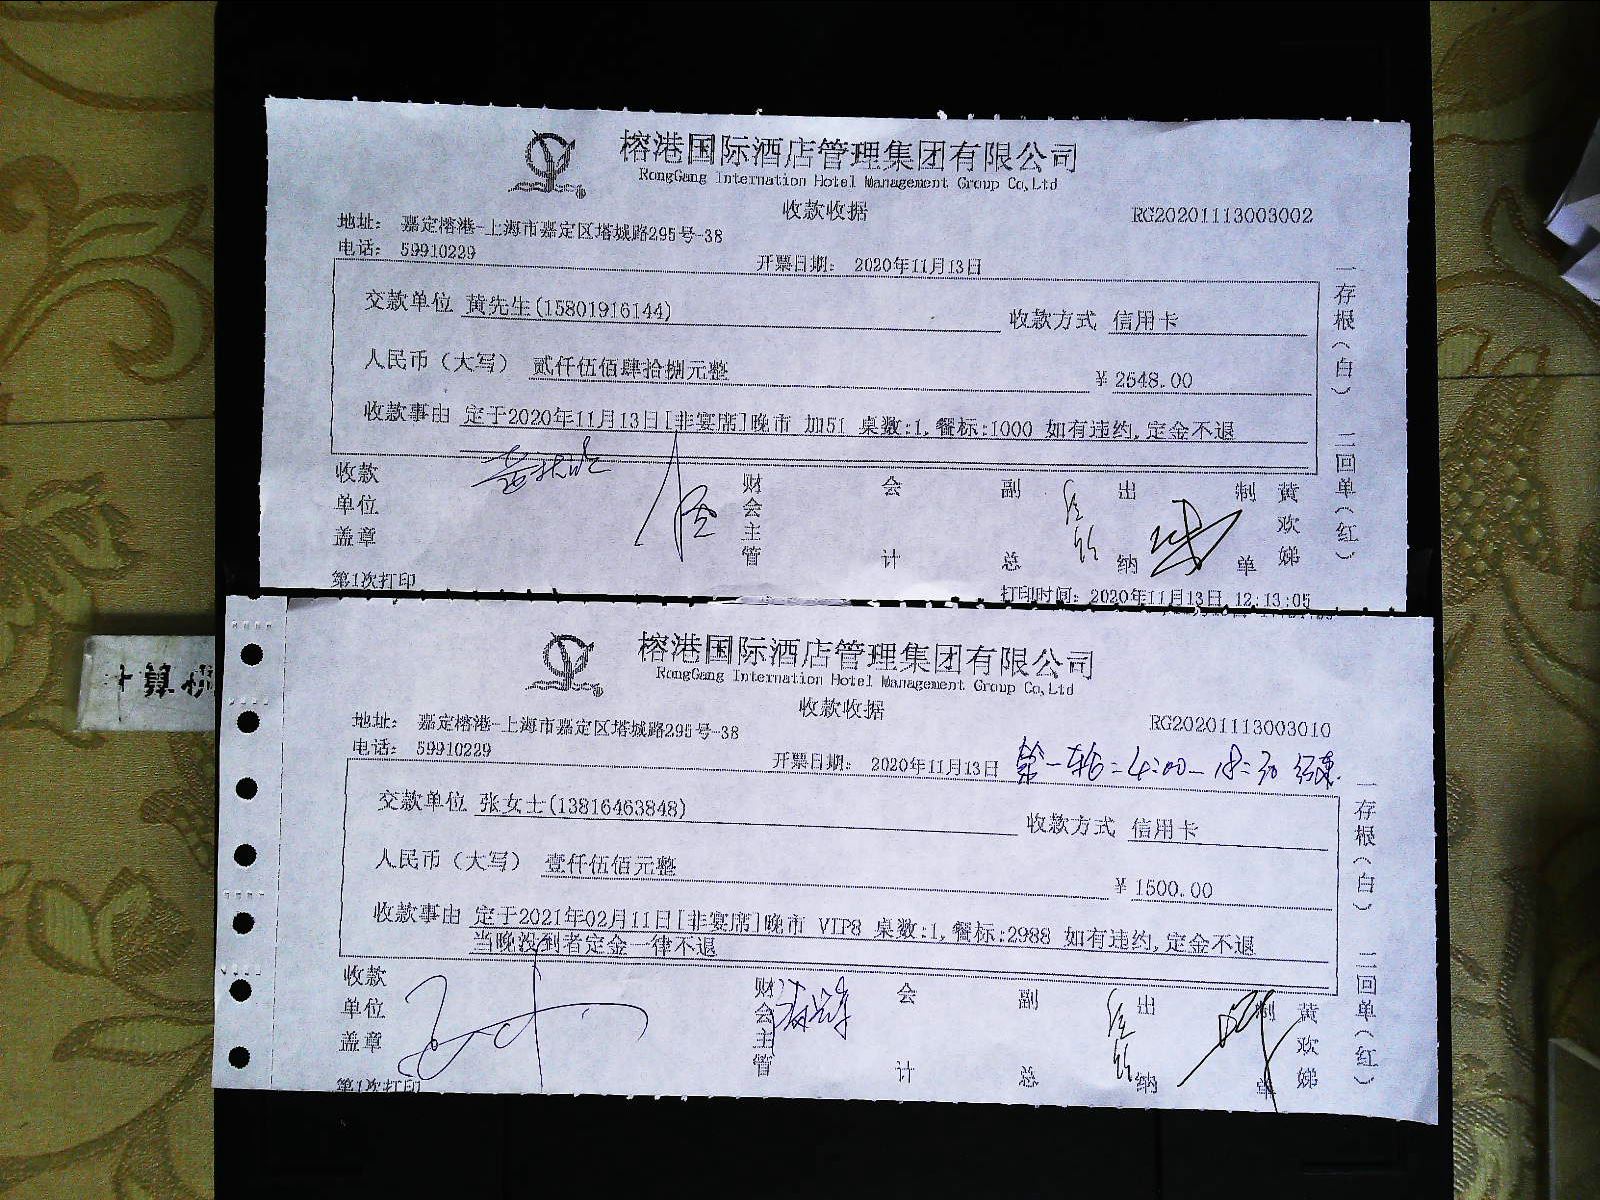 榕港国际酒店管理集团有限公司
RongGang Internation Hotel Management Group Co,Ltd
收款收据
RG20201113003002
地址： 嘉定榕港-上海市嘉定区塔城路295号-38
电话： 59910229
开票日期： 2020年11月13日
交款单位 黄先生(15801916144)
收款方式 信用卡
人民币（大写） 贰仟伍佰肆拾捌元整
¥ 2548.00
收款事由 定于2020年11月13日[非宴席]晚市 加51 桌数:1,餐标:1000 如有违约,定金不退
收款单位盖章
财会主管
会计
副总
出纳
制单
黄欢娣
一存根（白）
二回单（红）
第1次打印
打印时间：2020年11月13日 12:13:05
榕港国际酒店管理集团有限公司
RongGang Internation Hotel Management Group Co,Ltd
收款收据
RG20201113003010
地址： 嘉定榕港-上海市嘉定区塔城路295号-38
电话： 59910229
开票日期： 2020年11月13日
第一轮=4:00-18=30 结束.
交款单位 张女士(13816463848)
收款方式 信用卡
人民币（大写） 壹仟伍佰元整
¥ 1500.00
收款事由 定于2021年02月11日[非宴席]晚市 VIP8 桌数:1,餐标:2988 如有违约,定金不退
当晚没到者定金一律不退
收款单位盖章
财会主管
会计
副总
出纳
制单
黄欢娣
一存根（白）
二回单（红）
第1次打印